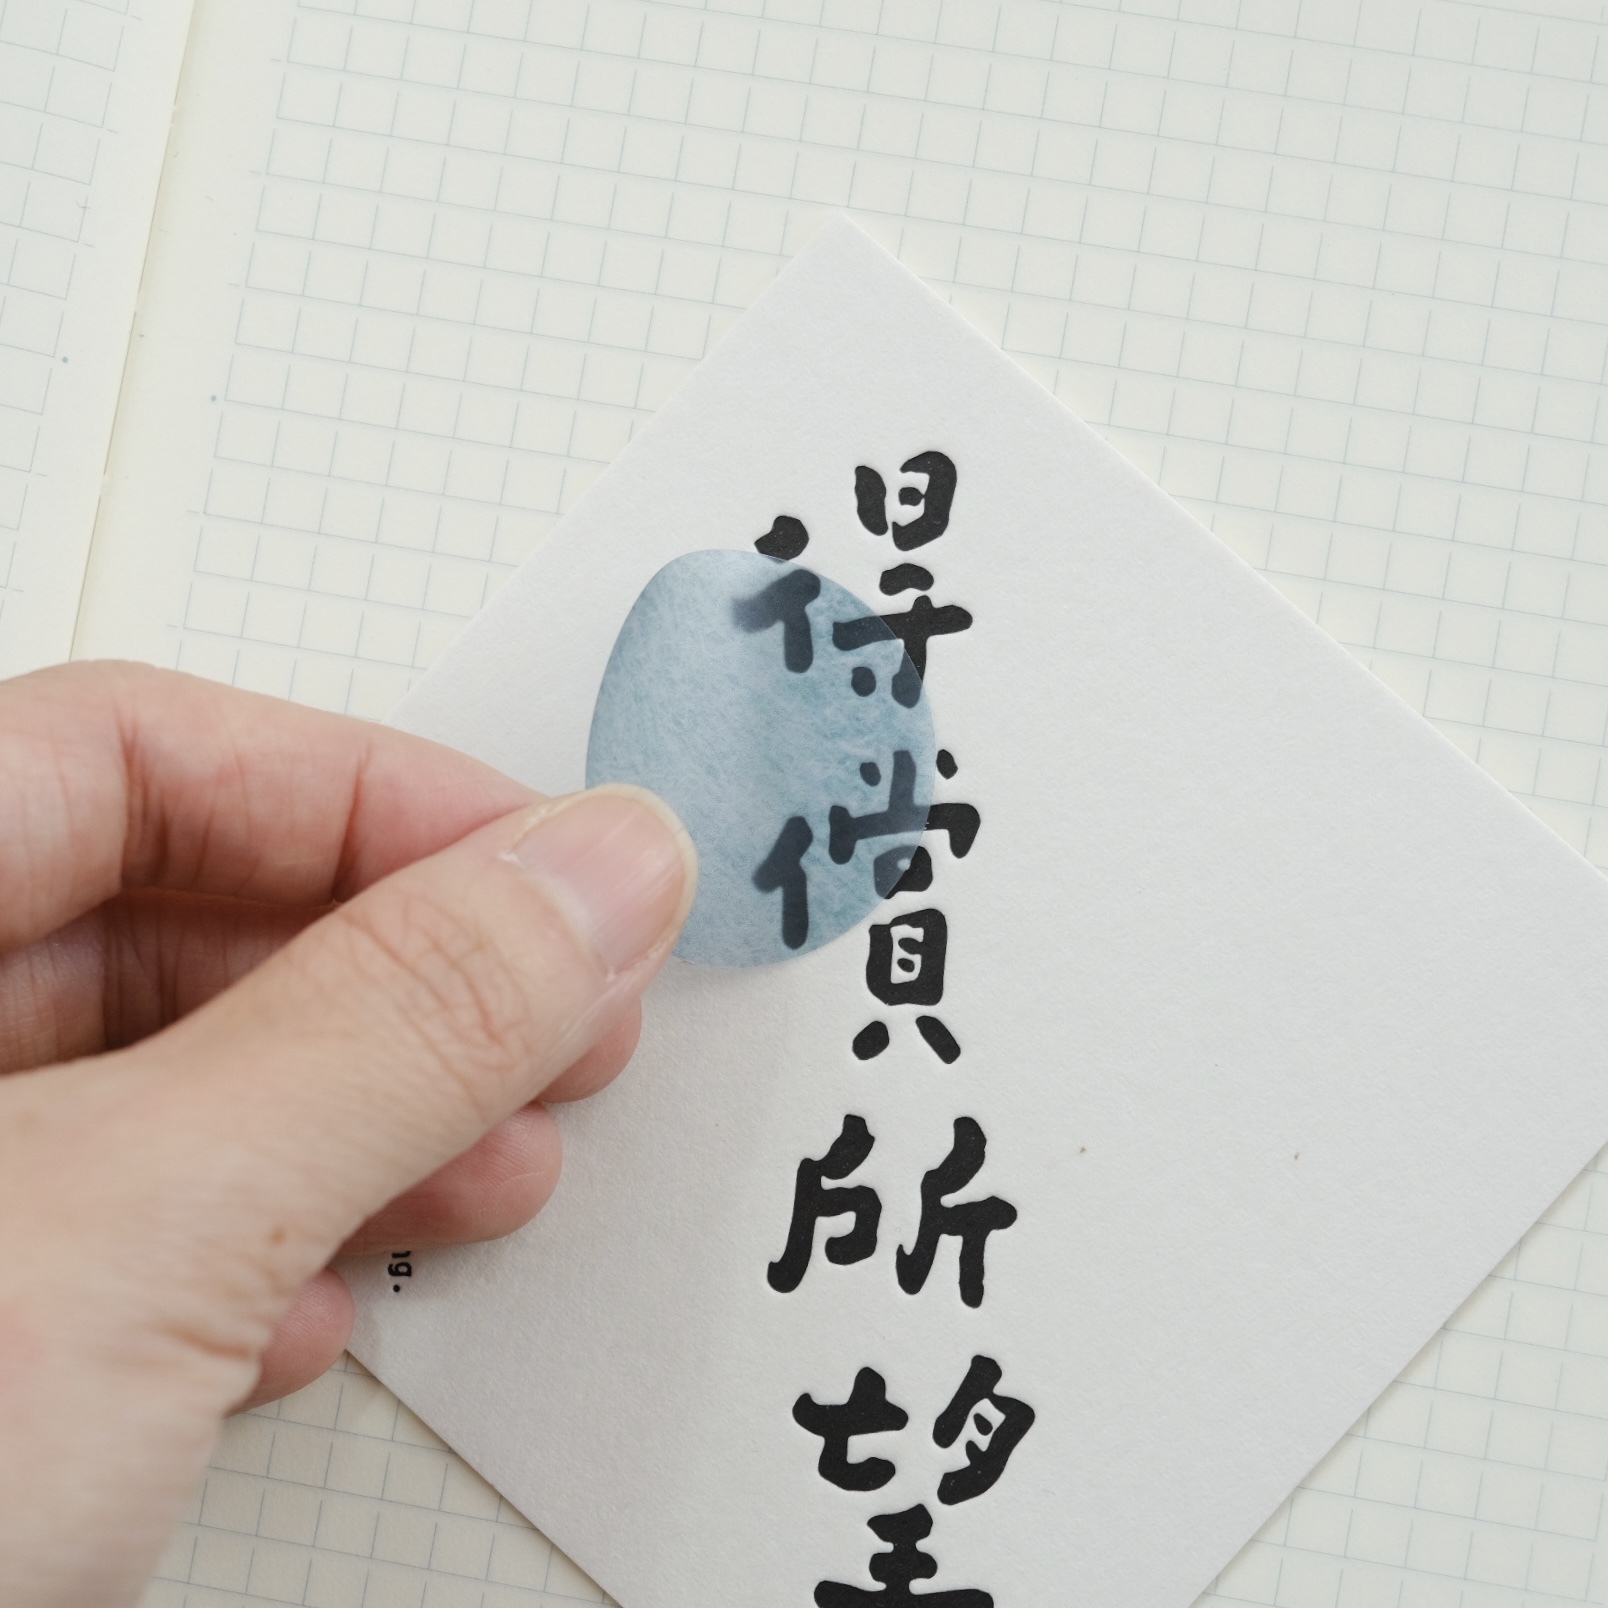 得償所望
ng.